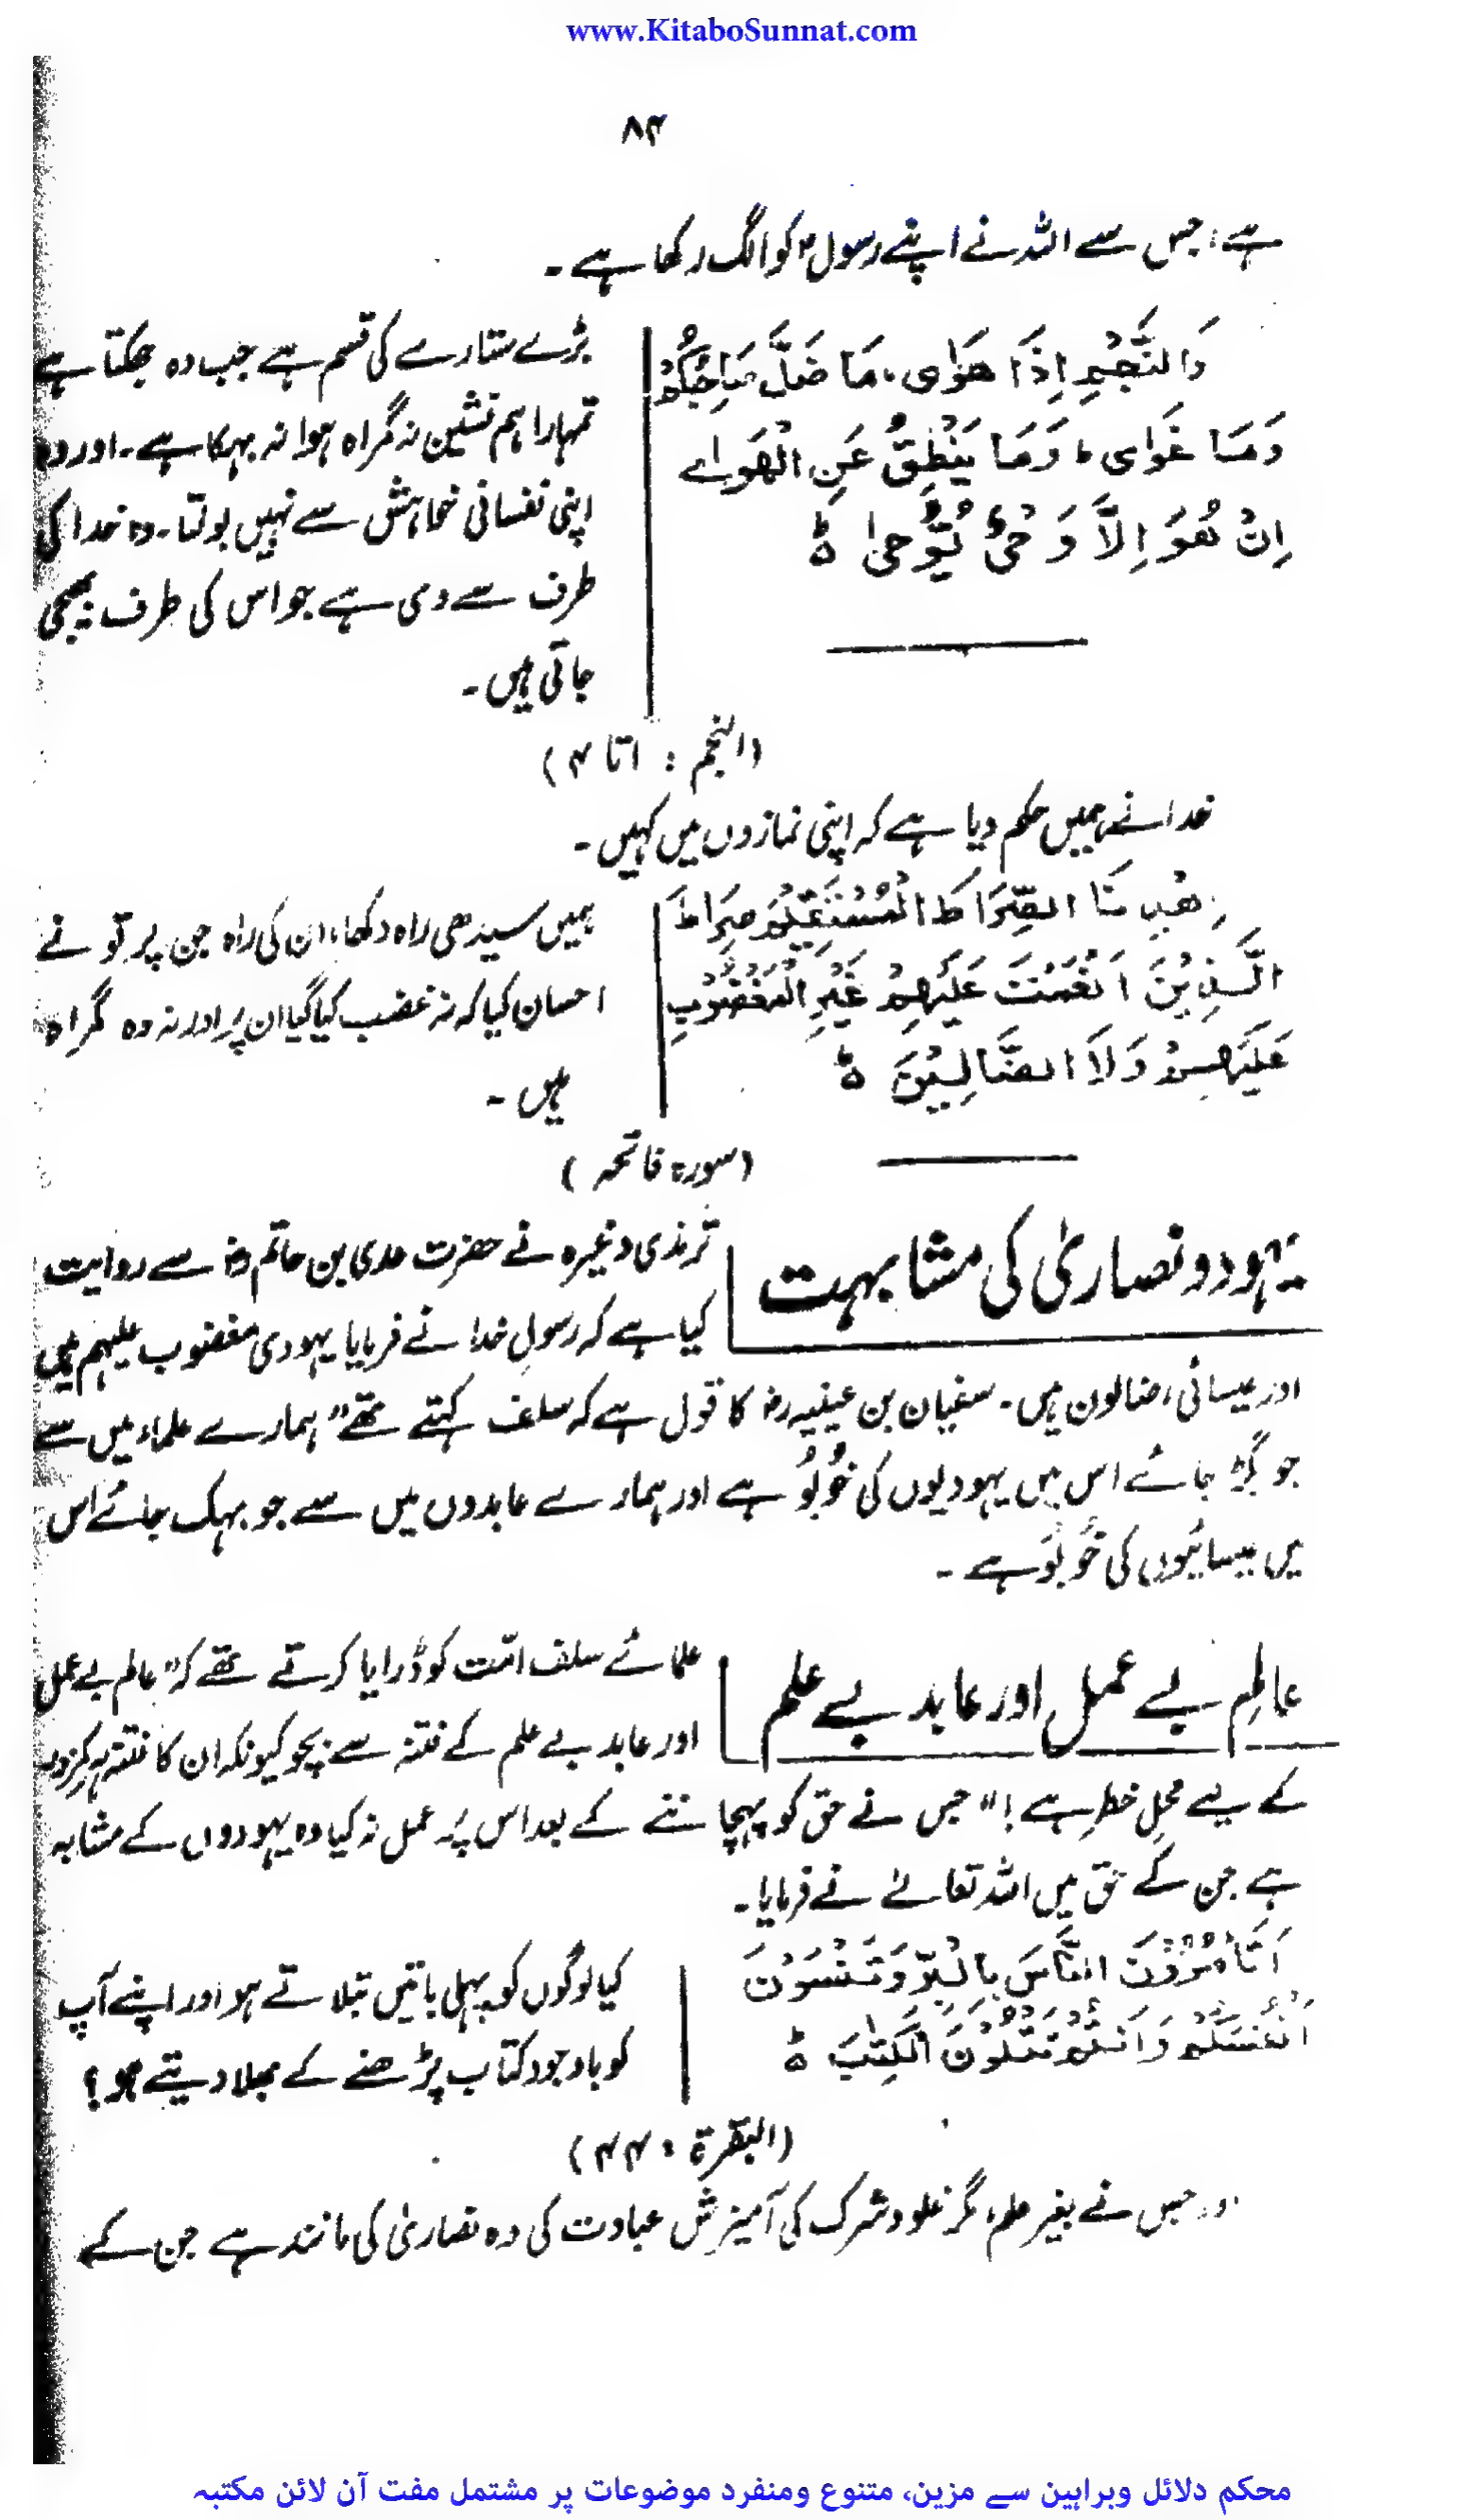 www.KitaboSunnat.com
۸۴
ہے، جس سے اللہ نے اپنے رسولؐ کو الگ رکھا ہے۔
وَالنَّجْمِ اِذَا هَوٰى، مَا ضَلَّ صَاحِبُكُمْ
وَمَا غَوٰى، وَمَا يَنْطِقُ عَنِ الْهَوٰے
اِنْ هُوَ اِلَّا وَحْىٌ يُّوْحٰى ۵ؕ
بڑے ستارے کی قسم ہے جب وہ جھکتا ہے
تمہارا ہم نشین نہ گمراہ ہوا نہ بہکا ہے۔ اور وہ
اپنی نفسانی خواہش سے نہیں بولتا۔ وہ خدا کی
طرف سے وحی ہے جو اس کی طرف بھیجی
جاتی ہیں۔
(النجم : ۱ تا ۴)
خدا نے ہمیں حکم دیا ہے کہ اپنی نمازوں میں کہیں۔
اِهْدِنَا الصِّرَاطَ الْمُسْتَقِيْمَ صِرَاطَ
الَّذِيْنَ اَنْعَمْتَ عَلَيْهِمْ غَيْرِ الْمَغْضُوْبِ
عَلَيْهِمْ وَلَا الضَّالِّيْنَ ۵ؕ
ہمیں سیدھی راہ دکھا، ان کی راہ جن پر تو نے
احسان کیا کہ نہ غضب کیا گیا ان پر اور نہ وہ گمراہ
ہیں۔
(سورۃ فاتحہ)
یہود و نصاریٰ کی مشابہت
ترمذی وغیرہ نے حضرت عدی بن حاتم رضؓ سے روایت
کیا ہے کہ رسولِ خدا نے فرمایا یہودی مغضوب علیہم ہیں
اور عیسائی، ضالون ہیں۔ سفیان بن عیینہ رح کا قول ہے کہ سلف کہتے تھے "ہمارے علماء میں سے
جو بگڑ جائے اس میں یہودیوں کی خُو بُو ہے اور ہمارے عابدوں میں سے جو بہک جائے اس
میں عیسائیوں کی خو بُو ہے۔
عالمِ بے عمل اور عابد بے علم
علمائے سلف امّت کو ڈرایا کرتے تھے کہ "عالم بے عمل
اور عابد بے علم کے فتنہ سے بچو کیونکہ ان کا فتنہ ہر کمزور
کے لیے محلِ خطر ہے!" جس نے حق کو پہچاننے کے بعد اس پر عمل نہ کیا وہ یہودوں کے مشابہ
ہے جن کے حق میں اللہ تعالےٰ نے فرمایا۔
اَتَأْمُرُوْنَ النَّاسَ بِالْبِرِّ وَتَنْسَوْنَ
اَنْفُسَكُمْ وَاَنْتُمْ تَتْلُوْنَ الْكِتٰبَ ۵ؕ
کیا لوگوں کو بھلی باتیں بتلاتے ہو اور اپنے آپ
کو باوجود کتاب پڑھنے کے بھلا دیتے ہو؟
(البقرۃ : ۴۴)
اور جس نے بغیر علم، مگر غلو و شرک کی آمیزش عبادت کی وہ نصاریٰ کی مانند ہے جن کے
محکم دلائل وبراہین سے مزین، متنوع ومنفرد موضوعات پر مشتمل مفت آن لائن مکتبہ